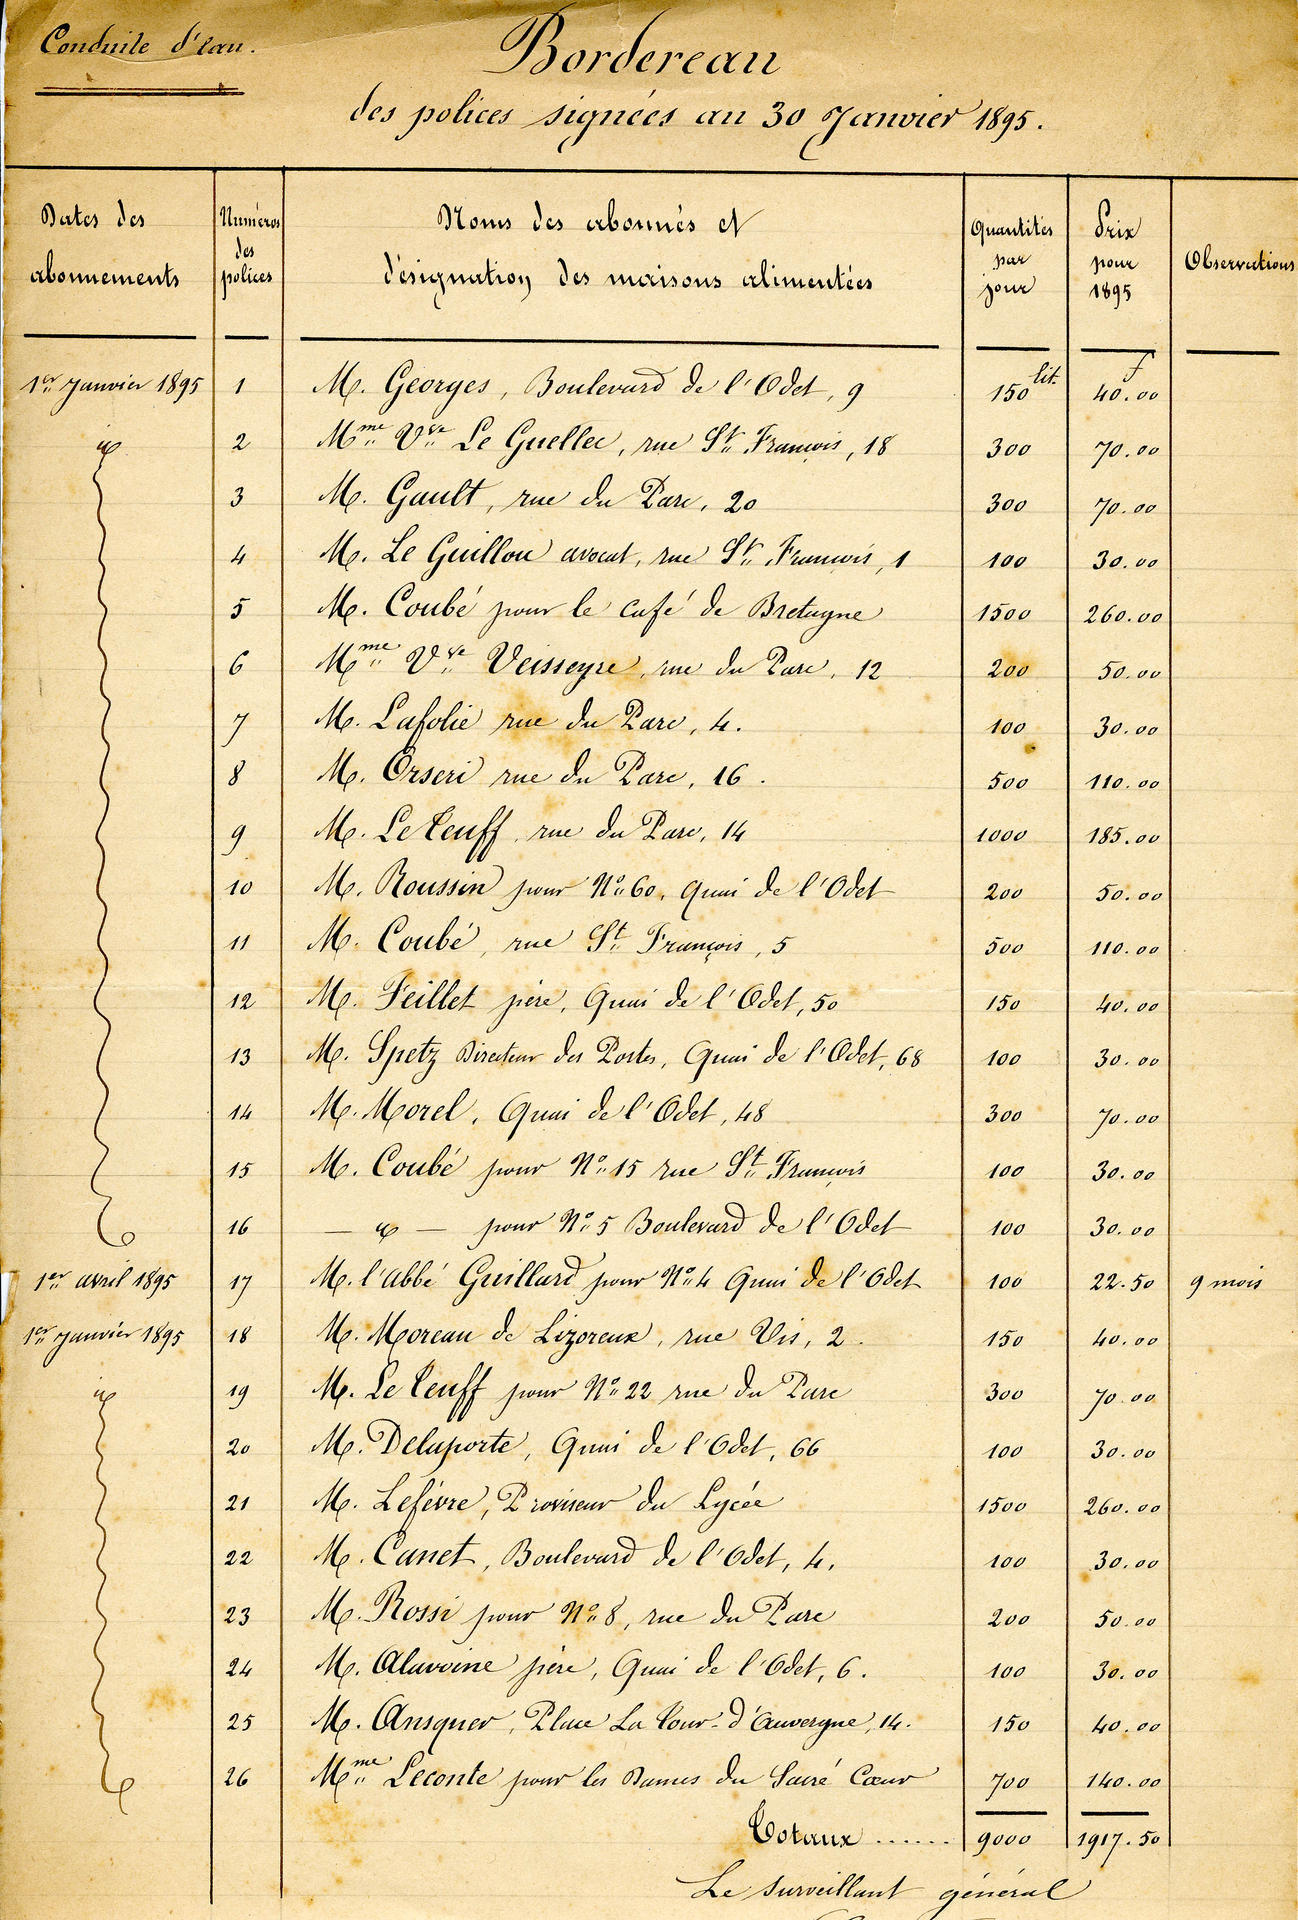 Conduite d'eau.
Bordereau
des polices signées au 30 Janvier 1895.
Dates des abonnements | Numéros des polices | Noms des abonnés et désignation des maisons alimentées | Quantités par jour | Prix pour 1895 | Observations
1er Janvier 1895 1 M. Georges, Boulevard de l'Odet, 9 150 lit. 40.00 f
id 2 Mme Vve Le Guellec, rue St François, 18 300 70.00
3 M. Gault, rue du Parc, 20 300 70.00
4 M. Le Guillou avocat, rue St François, 1 100 30.00
5 M. Coubé pour le café de Bretagne 1500 260.00
6 Mme Vve Veisseyre, rue du Parc, 12 200 50.00
7 M. Lafolie rue du Parc, 4. 100 30.00
8 M. Orseri rue du Parc, 16. 500 110.00
9 M. Le Teuff, rue du Parc, 14 1000 185.00
10 M. Roussin pour No 60, Quai de l'Odet 200 50.00
11 M. Coubé, rue St François, 5 500 110.00
12 M. Feillet père, Quai de l'Odet, 50 150 40.00
13 M. Spetz Directeur des Postes, Quai de l'Odet, 68 100 30.00
14 M. Morel, Quai de l'Odet, 48 300 70.00
15 M. Coubé pour No 15 rue St François 100 30.00
16 — id — pour No 5 Boulevard de l'Odet 100 30.00
1er avril 1895 17 M. l'abbé Guillard pour No 4 Quai de l'Odet 100 22.50 9 mois
1er Janvier 1895 18 M. Moreau de Lizoreux, rue Vis, 2. 150 40.00
id 19 M. Le Teuff pour No 22 rue du Parc 300 70.00
20 M. Delaporte, Quai de l'Odet, 66 100 30.00
21 M. Lefèvre, Proviseur du Lycée 1500 260.00
22 M. Canet, Boulevard de l'Odet, 4. 100 30.00
23 M. Rossi pour No 8, rue du Parc 200 50.00
24 M. Alavoine père, Quai de l'Odet, 6. 100 30.00
25 M. Ansquer, Place La Tour-d'Auvergne, 14. 150 40.00
26 Mme Leconte pour les Dames du Sacré Cœur 700 140.00
Totaux ...... 9000 1917.50
Le surveillant général